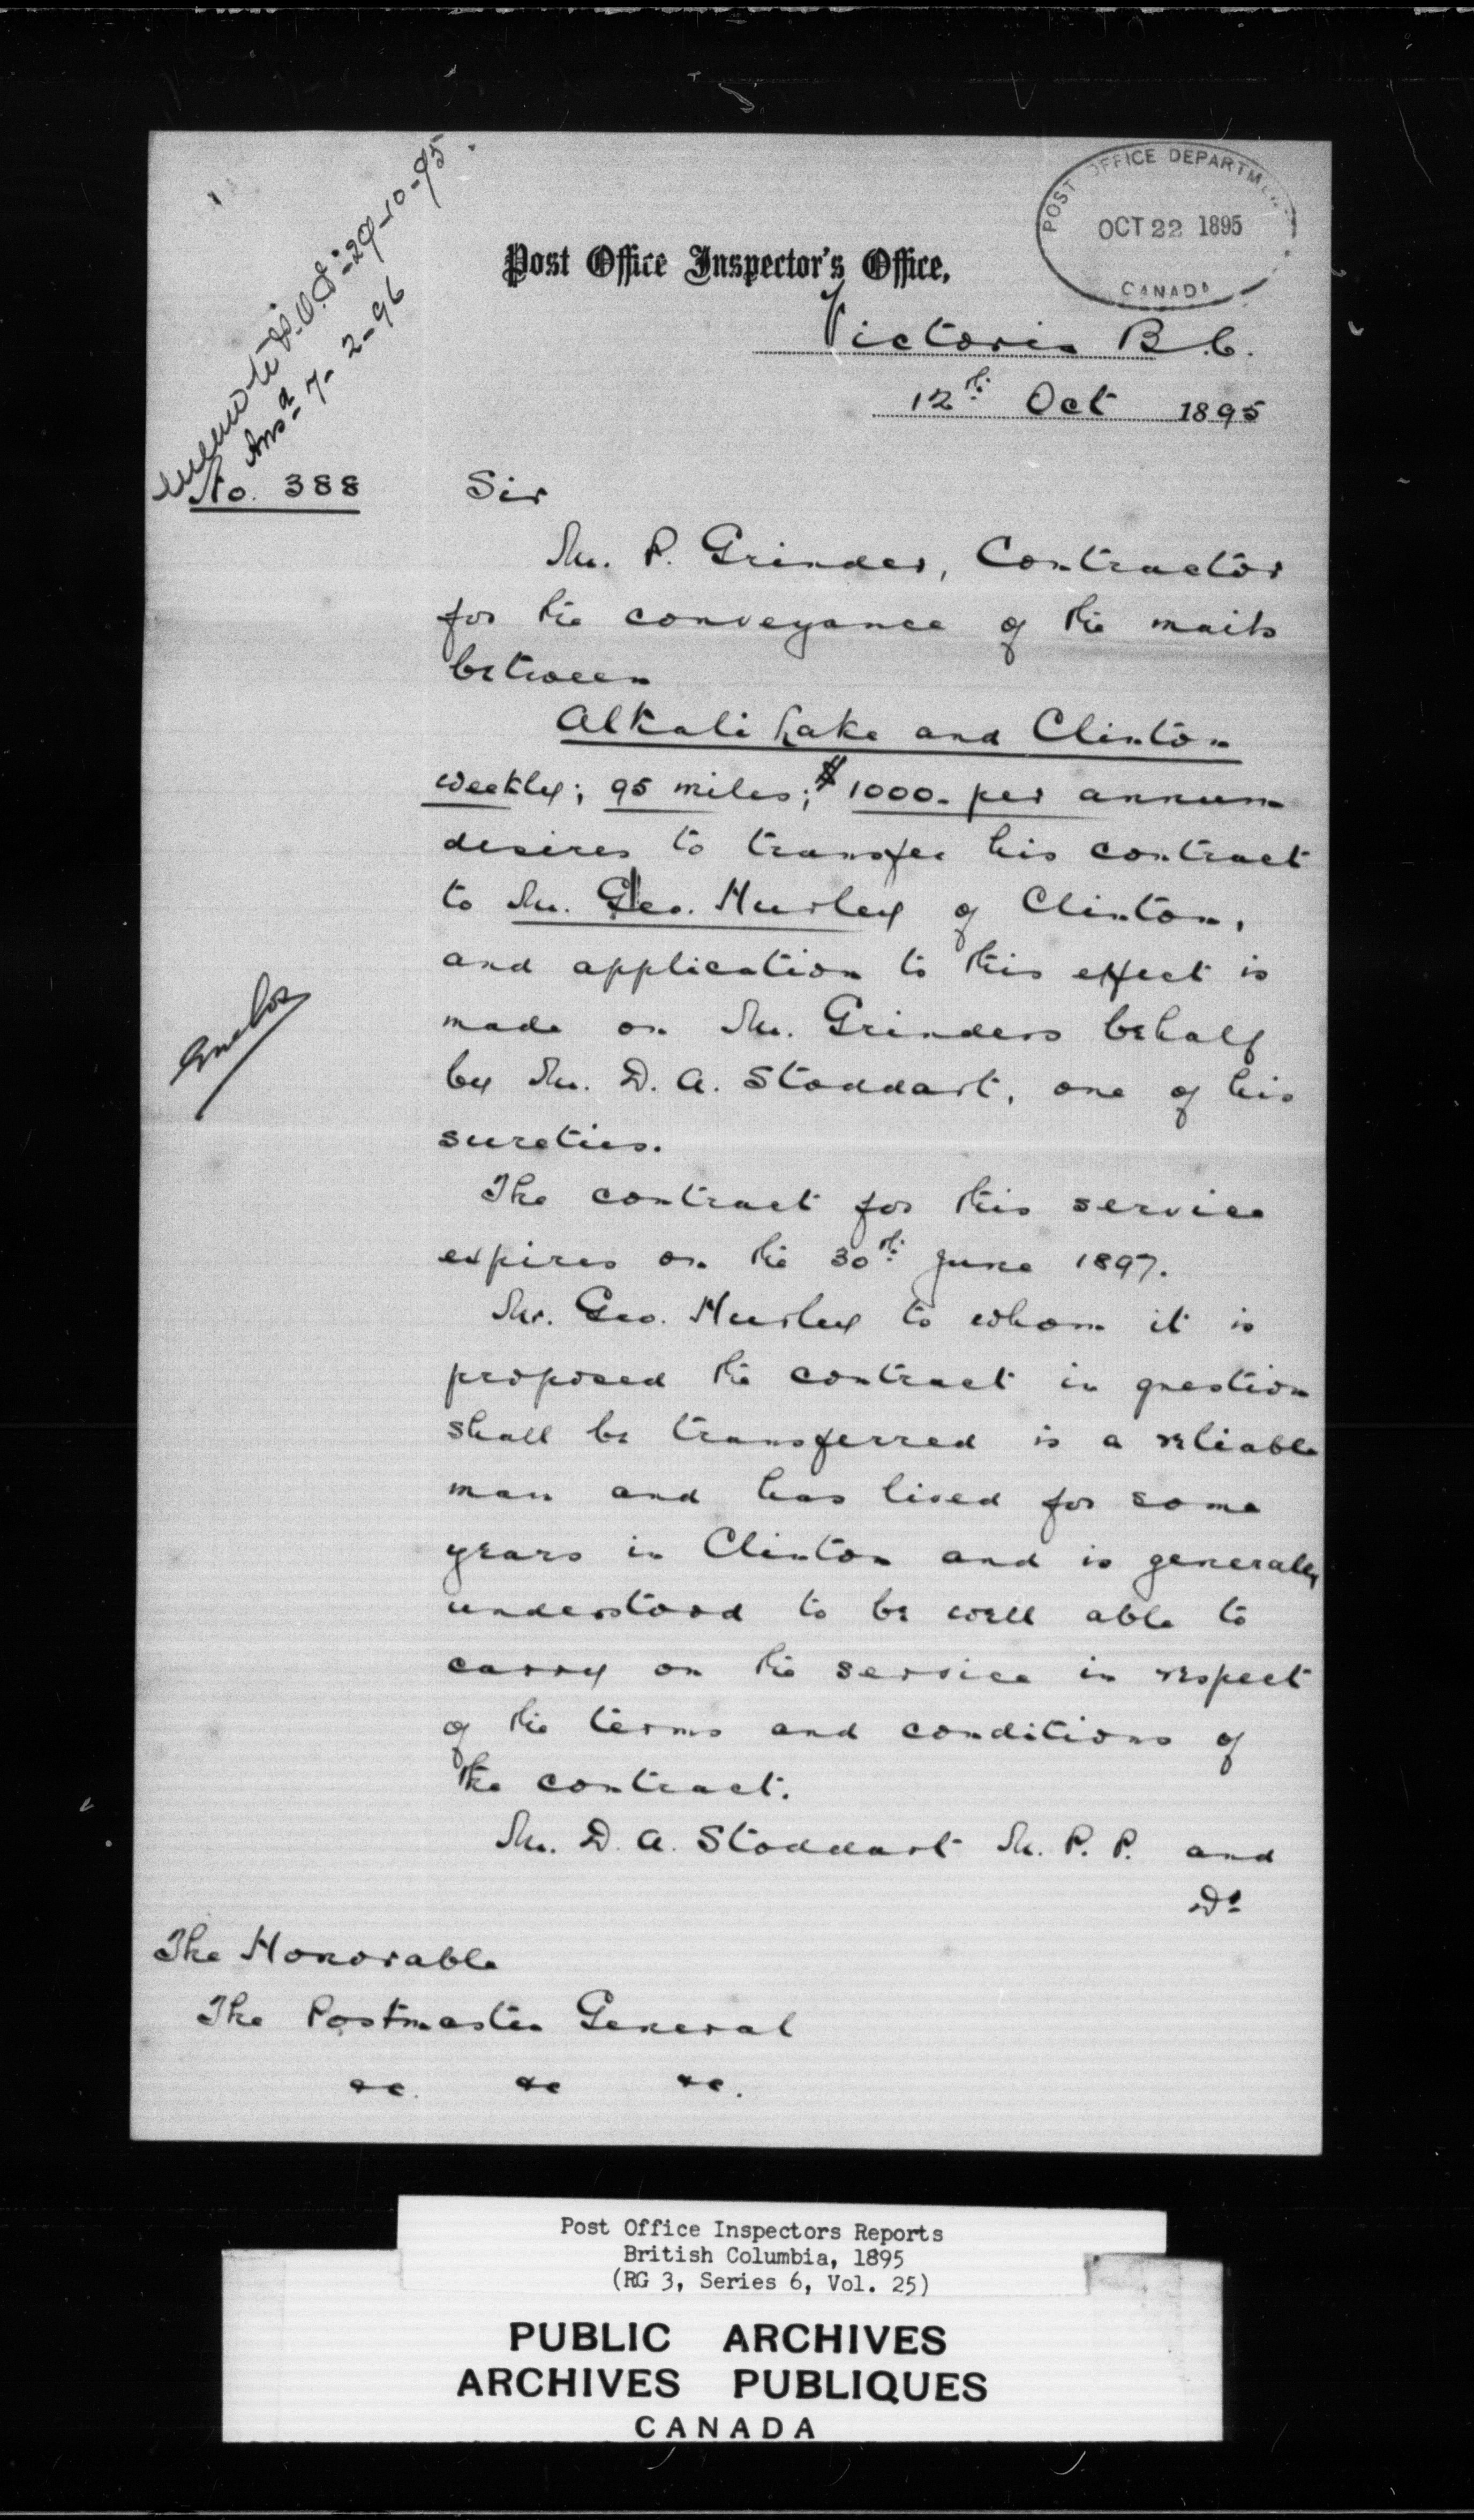 memo to P.O.I. 29-10-95.
Ansd 7-2-96
POST OFFICE DEPARTMENT
OCT 22 1895
CANADA
Post Office Inspector's Office,
Victoria B.C.
12th Oct 1895
No. 388
Sir
Mr. P. Grinder, Contractor
for the conveyance of the mails
between
Alkali Lake and Clinton
weekly; 95 miles; $1000- per annum
desires to transfer his contract
to Mr. Geo. Hurley of Clinton,
and application to this effect is
made on Mr. Grinders behalf
Enclos
by Mr. D. A. Stoddart, one of his
sureties.
The contract for this service
expires on the 30th June 1897.
Mr. Geo. Hurley to whom it is
proposed the contract in question
shall be transferred is a reliable
man and has lived for some
years in Clinton and is generally
understood to be well able to
carry on the service in respect
of the terms and conditions of
the contract.
Mr. D. A. Stoddart M. P. P. and
Dr
The Honorable
The Postmaster General
&c. &c &c.
Post Office Inspectors Reports
British Columbia, 1895
(RG 3, Series 6, Vol. 25)
PUBLIC ARCHIVES
ARCHIVES PUBLIQUES
CANADA